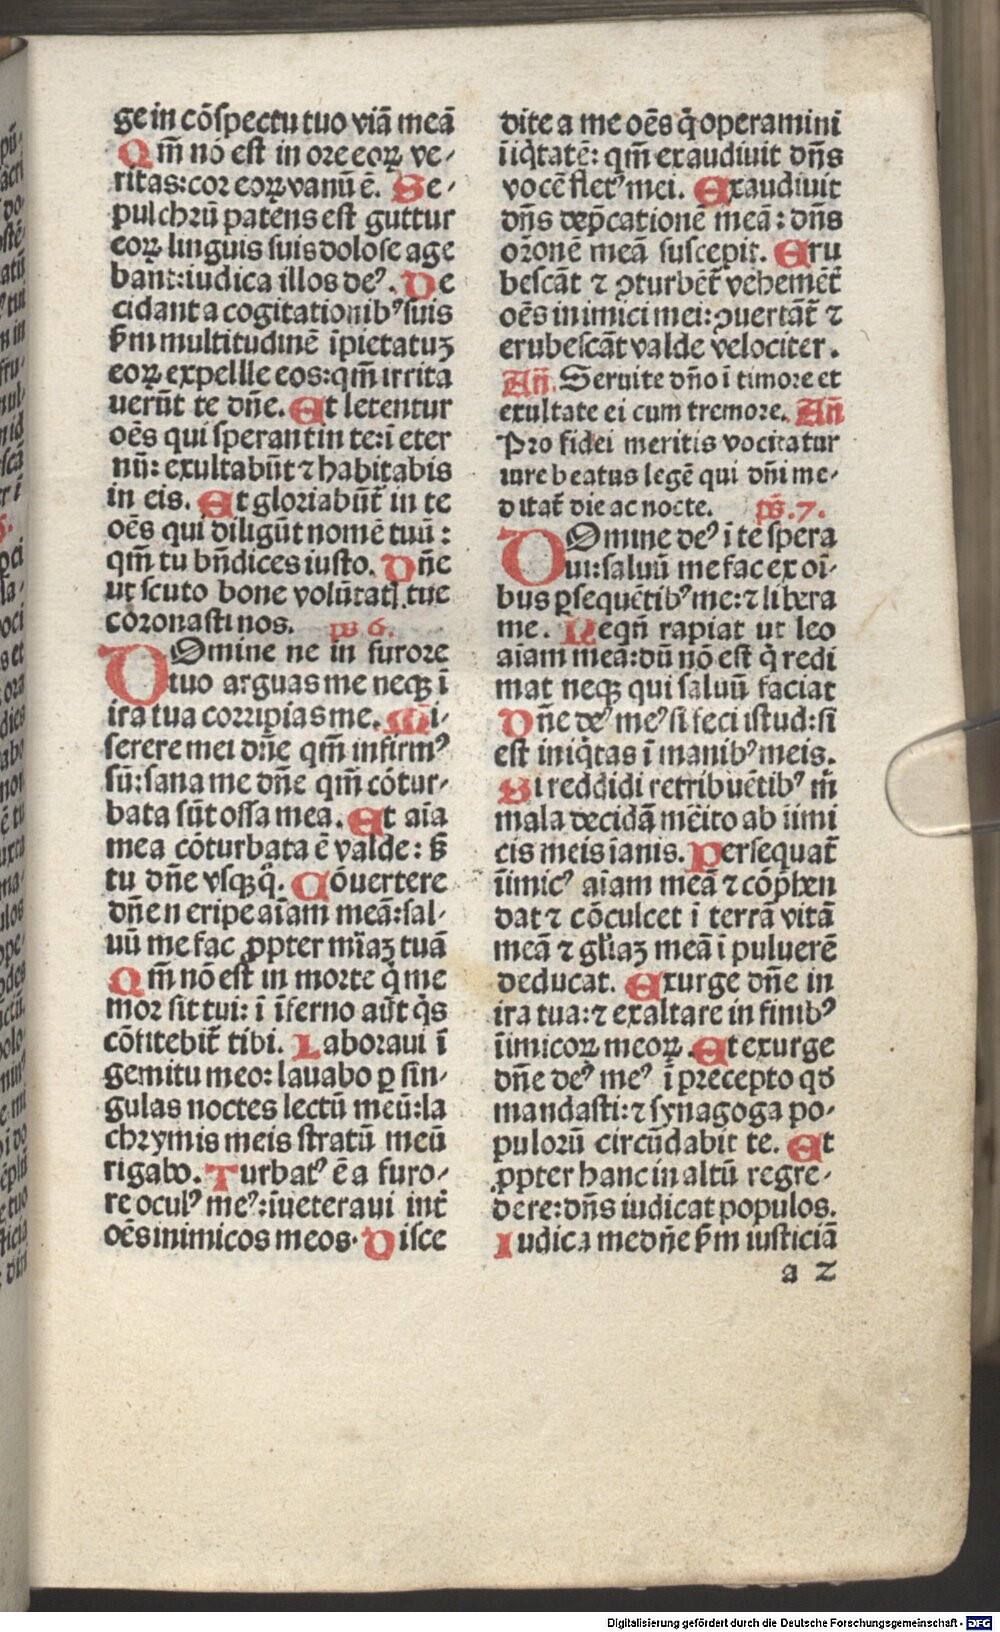 ge in cõſpectu tuo viã meã
Qm̃ nõ eſt in ore eoꝝ ve⸗
ritas: cor eoꝝ vanũ ē. Se⸗
pulchrũ patens eſt guttur
eoꝝ linguis ſuis doloſe age
bant: iudica illos deꝰ. De
cidant a cogitationibꝰ ſuis
ẜm multitudinē ĩpietatuꝫ
eoꝝ expellle eos: qm̃ irrita
uerũt te dñe. Et letentur
oẽs qui ſperant in te: ĩ eter
nũ: exultabũt ⁊ habitabis
in eis. Et gloriabũt᷑ in te
oẽs qui diligũt nomẽ tuũ:
qm̃ tu bñdices iuſto. Dñe
ut ſcuto bone volũtatꝭ tue
coronaſti nos. ps 6.
DOmine ne in furore
tuo arguas me neqꝫ ĩ
ira tua corripias me. Mi⸗
ſerere mei dñe qm̃ infirmꝰ
ſũ: ſana me dñe qm̃ cõtur⸗
bata ſũt oſſa mea. Et aĩa
mea cõturbata ē valde: ẜ
tu dñe vſqꝫq̃. Cõuertere
dñe n eripe aĩam meã: ſal⸗
uũ me fac ꝓpter mĩaꝫ tuã
Qm̃ nõ eſt in morte q̃ me
mor ſit tui: ĩ ĩferno aũt q̃s
cõfitebit᷑ tibi. Laboraui ĩ
gemitu meo: lauabo ꝑ ſin⸗
gulas noctes lectũ meũ: la
chrymis meis ſtratũ meũ
rigabo. Turbatꝰ ē a furo⸗
re oculꝰ meꝰ: ĩueteraui int̃
oẽs inimicos meos. Diſce
dite a me oẽs q̃ operamini
ĩiq̃tatẽ: qm̃ exaudiuit dñs
vocẽ fletꝰ mei. Exaudiuit
dñs dep̃cationẽ meã: dñs
oꝛonẽ meã ſuſcepit. Eru
beſcãt ⁊ ꝯturbẽt᷑ vehemẽt᷑
oẽs inimici mei: ꝯuertãt᷑ ⁊
erubeſcãt valde velociter.
Añ. Seruite dño ĩ timore et
exultate ei cum tremore. Añ
Pro fidei meritis vocitatur
iure beatus legẽ qui dñi me⸗
ditat᷑ die ac nocte. ps. 7.
DOmine deꝰ ĩ te ſpera
ui: ſaluũ me fac ex oĩ⸗
bus ꝑſequẽtibꝰ me: ⁊ libera
me. Neqñ rapiat ut leo
aĩam meã: dũ nõ eſt q̃ redi
mat neqꝫ qui ſaluũ faciat
Dñe deꝰ meꝰ ſi feci iſtud: ſi
eſt iniq̃tas ĩ manibꝰ meis.
Si reddidi retribuẽtibꝰ m̃
mala decidã mẽito ab iimi
cis meis ĩanis. Perſequat᷑
ĩimicꝰ aĩam meã ⁊ cõp̃hen
dat ⁊ cõculcet ĩ terrã vitã
meã ⁊ gl̃iaꝫ meã ĩ puluerẽ
deducat. Exurge dñe in
ira tua: ⁊ exaltare in finibꝰ
ĩimicoꝝ meoꝝ. Et exurge
dñe deꝰ meꝰ ĩ precepto qď
mandaſti: ⁊ ſynagoga po⸗
pulorũ circũdabit te. Et
ꝓpter hanc in altũ regre⸗
dere: dñs iudicat populos.
Iudica me dñe ẜm iuſticiã
a 2
Digitalisierung gefördert durch die Deutsche Forschungsgemeinschaft - DFG